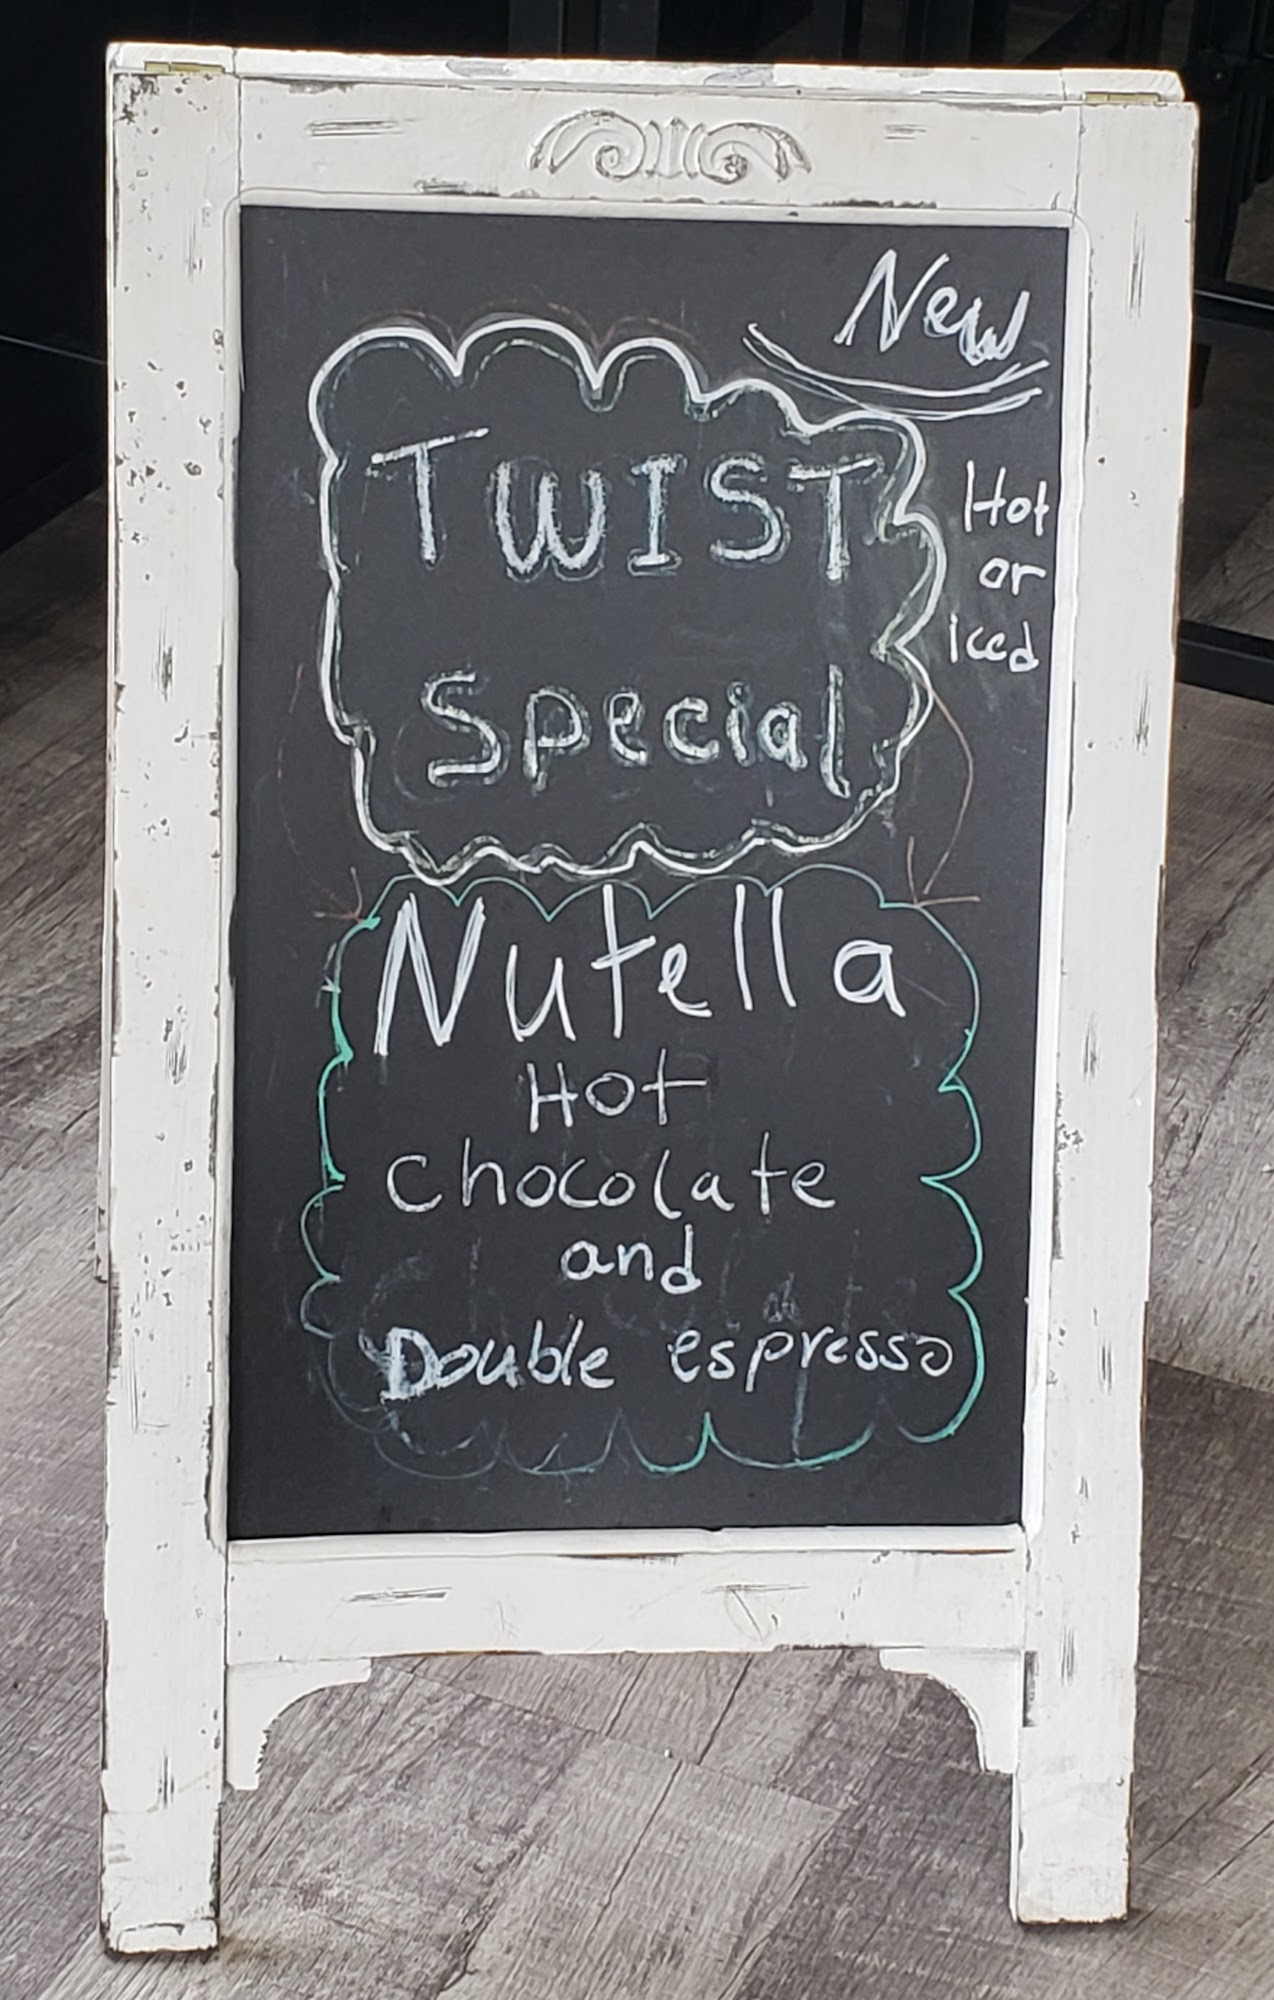 New
TWIST
Special
Hot
or
iced
Nutella
Hot
chocolate
and
Double espresso